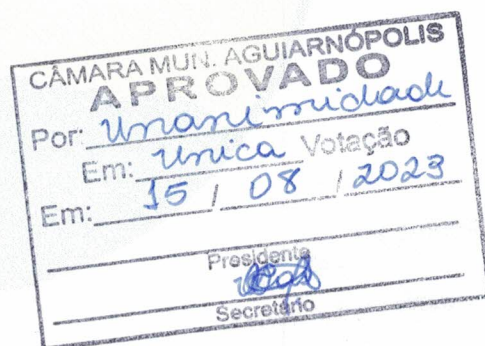 CÂMARA MUN. AGUIARNÓPOLIS
APROVADO
Por: Unanimidade
Em: Unica Votação
Em: 15 / 08 / 2023
Presidente
Secretário